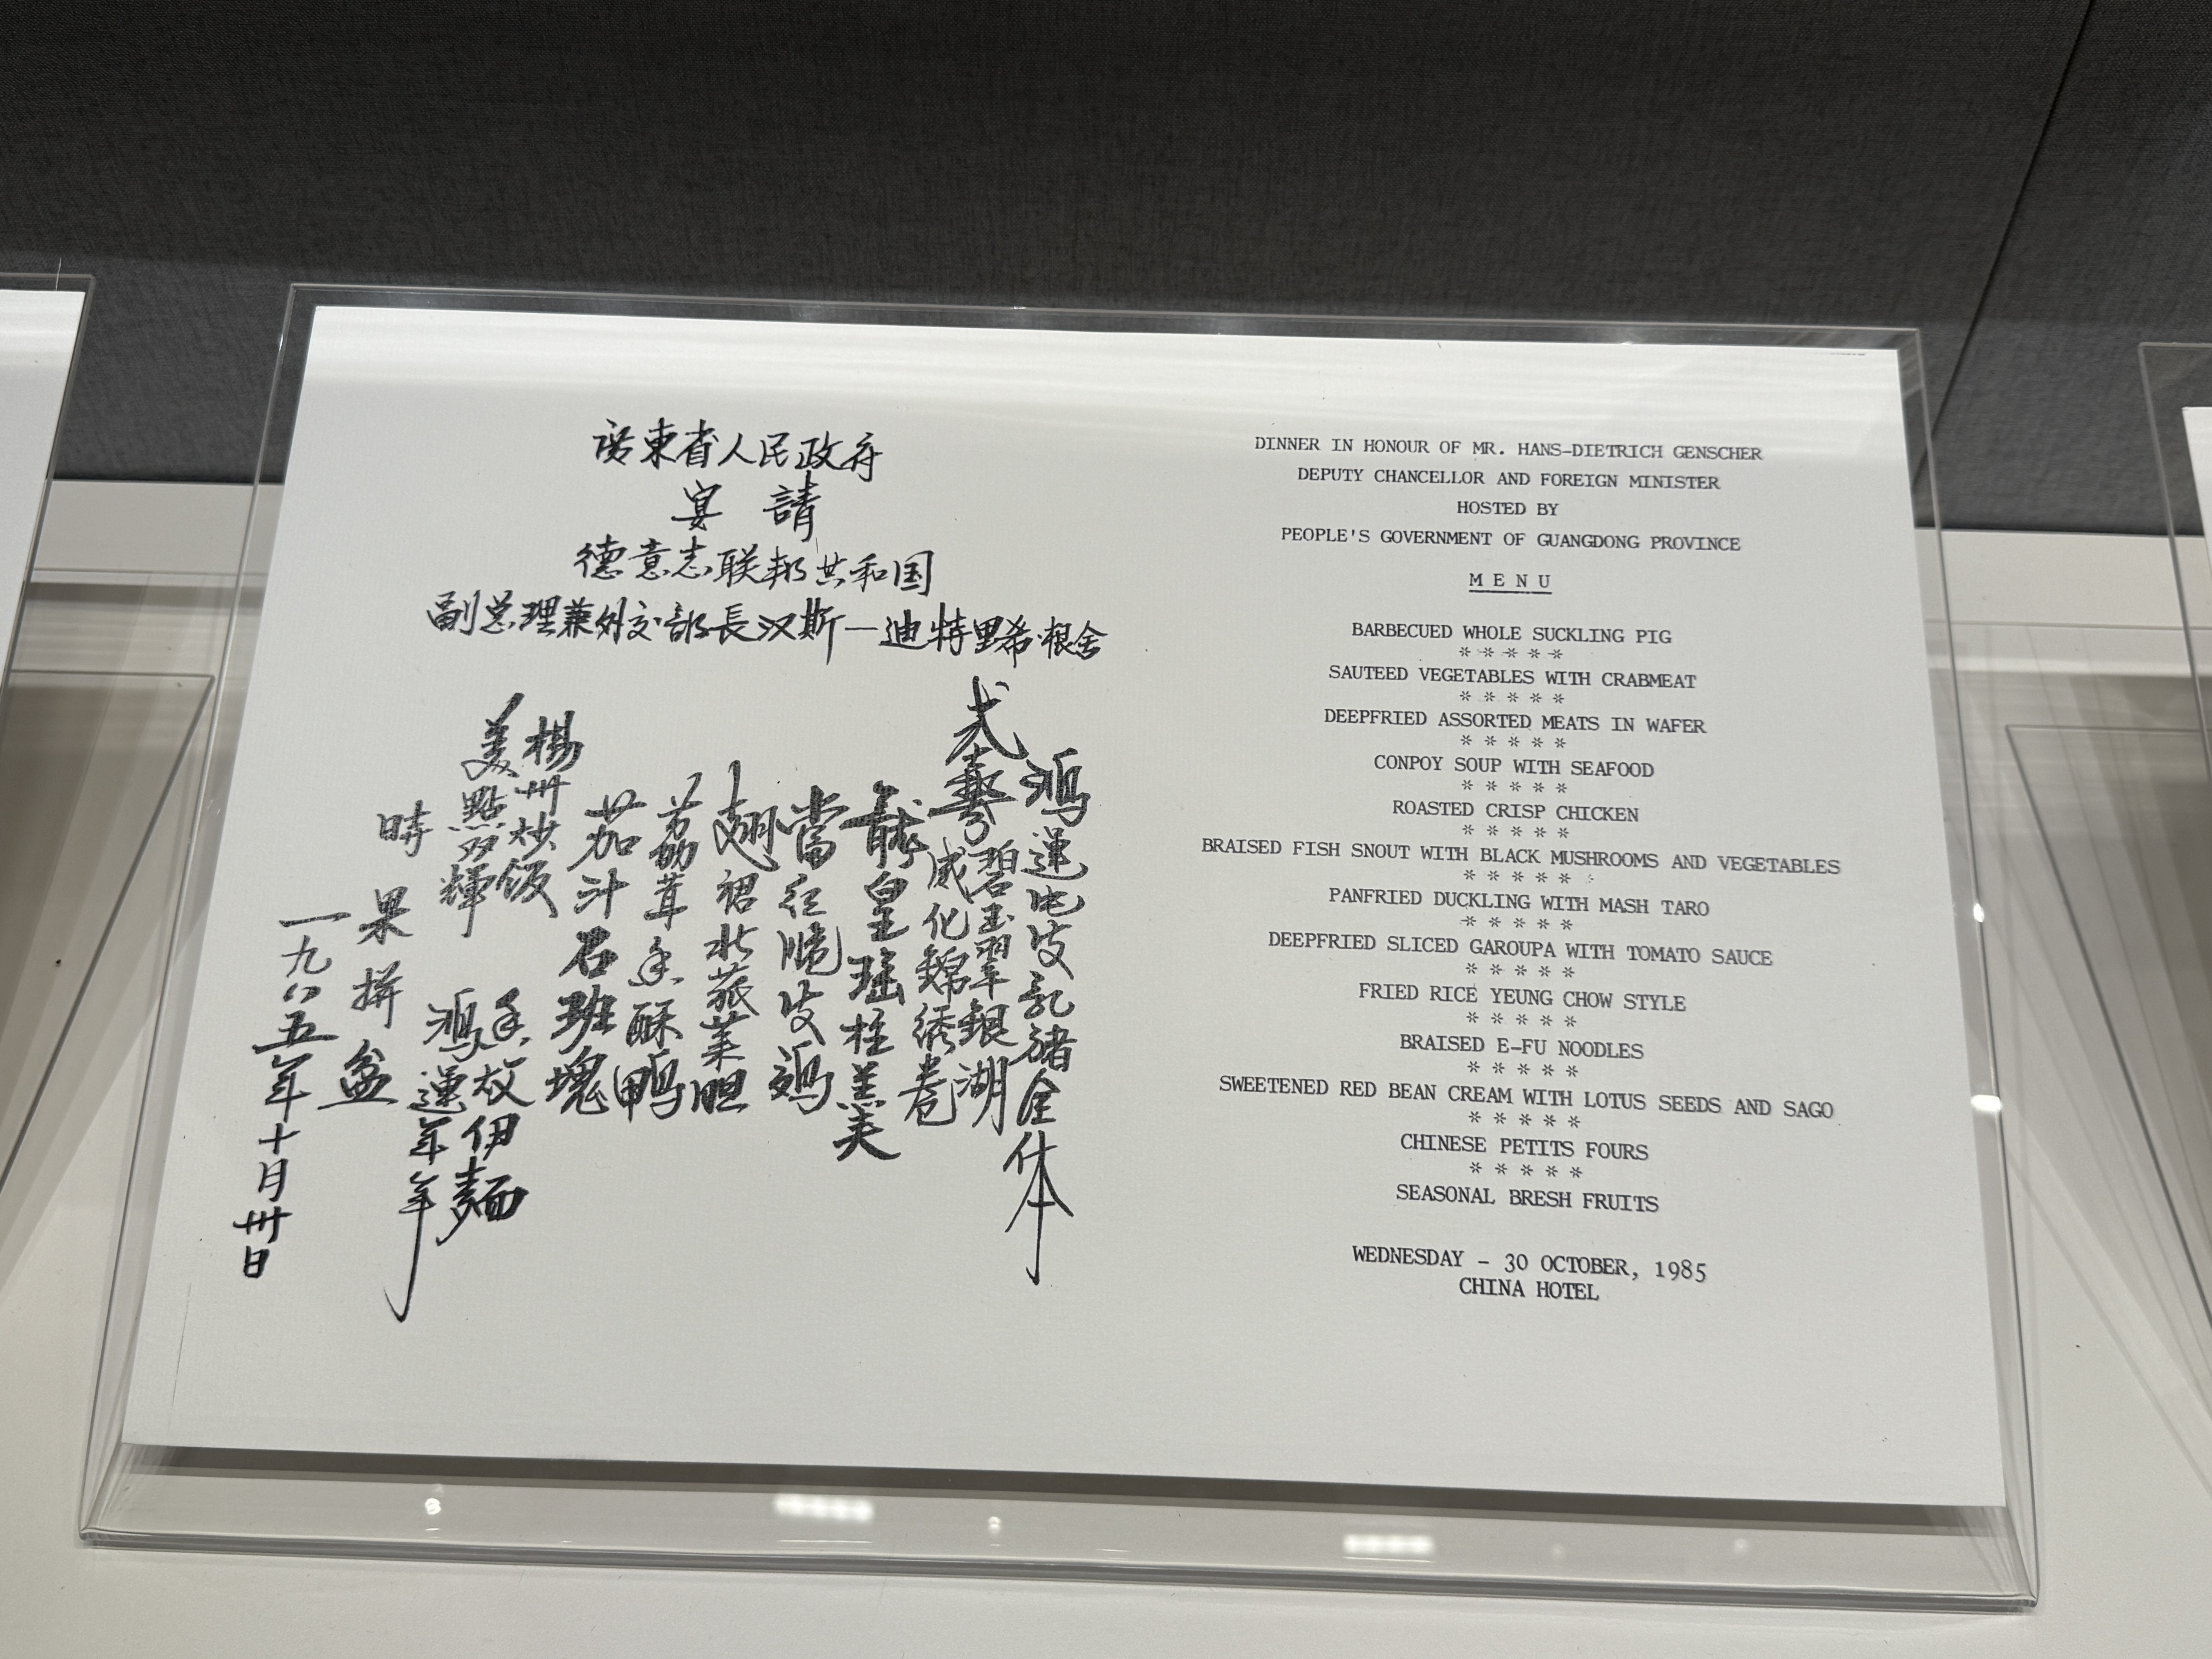 廣東省人民政府
宴請
德意志联邦共和国
副总理兼外交部長汉斯—迪特里希·根舍
鴻運化皮乳豬全体
弍羹
碧玉翠銀湖
威化錦綉卷
龍皇瑤柱羹
當红脆皮鸡
翅裙北菰菜胆
荔茸香酥鴨
茄汁石班塊
楊州炒飯
香菰伊麵
美點双輝
鴻運年年
時果拼盆
一九八五年十月卅日
DINNER IN HONOUR OF MR. HANS-DIETRICH GENSCHER
DEPUTY CHANCELLOR AND FOREIGN MINISTER
HOSTED BY
PEOPLE'S GOVERNMENT OF GUANGDONG PROVINCE
M E N U
BARBECUED WHOLE SUCKLING PIG
* * * * *
SAUTEED VEGETABLES WITH CRABMEAT
* * * * *
DEEPFRIED ASSORTED MEATS IN WAFER
* * * * *
CONPOY SOUP WITH SEAFOOD
* * * * *
ROASTED CRISP CHICKEN
* * * * *
BRAISED FISH SNOUT WITH BLACK MUSHROOMS AND VEGETABLES
* * * * *
PANFRIED DUCKLING WITH MASH TARO
* * * * *
DEEPFRIED SLICED GAROUPA WITH TOMATO SAUCE
* * * * *
FRIED RICE YEUNG CHOW STYLE
* * * * *
BRAISED E-FU NOODLES
* * * * *
SWEETENED RED BEAN CREAM WITH LOTUS SEEDS AND SAGO
* * * * *
CHINESE PETITS FOURS
* * * * *
SEASONAL BRESH FRUITS
WEDNESDAY - 30 OCTOBER, 1985
CHINA HOTEL